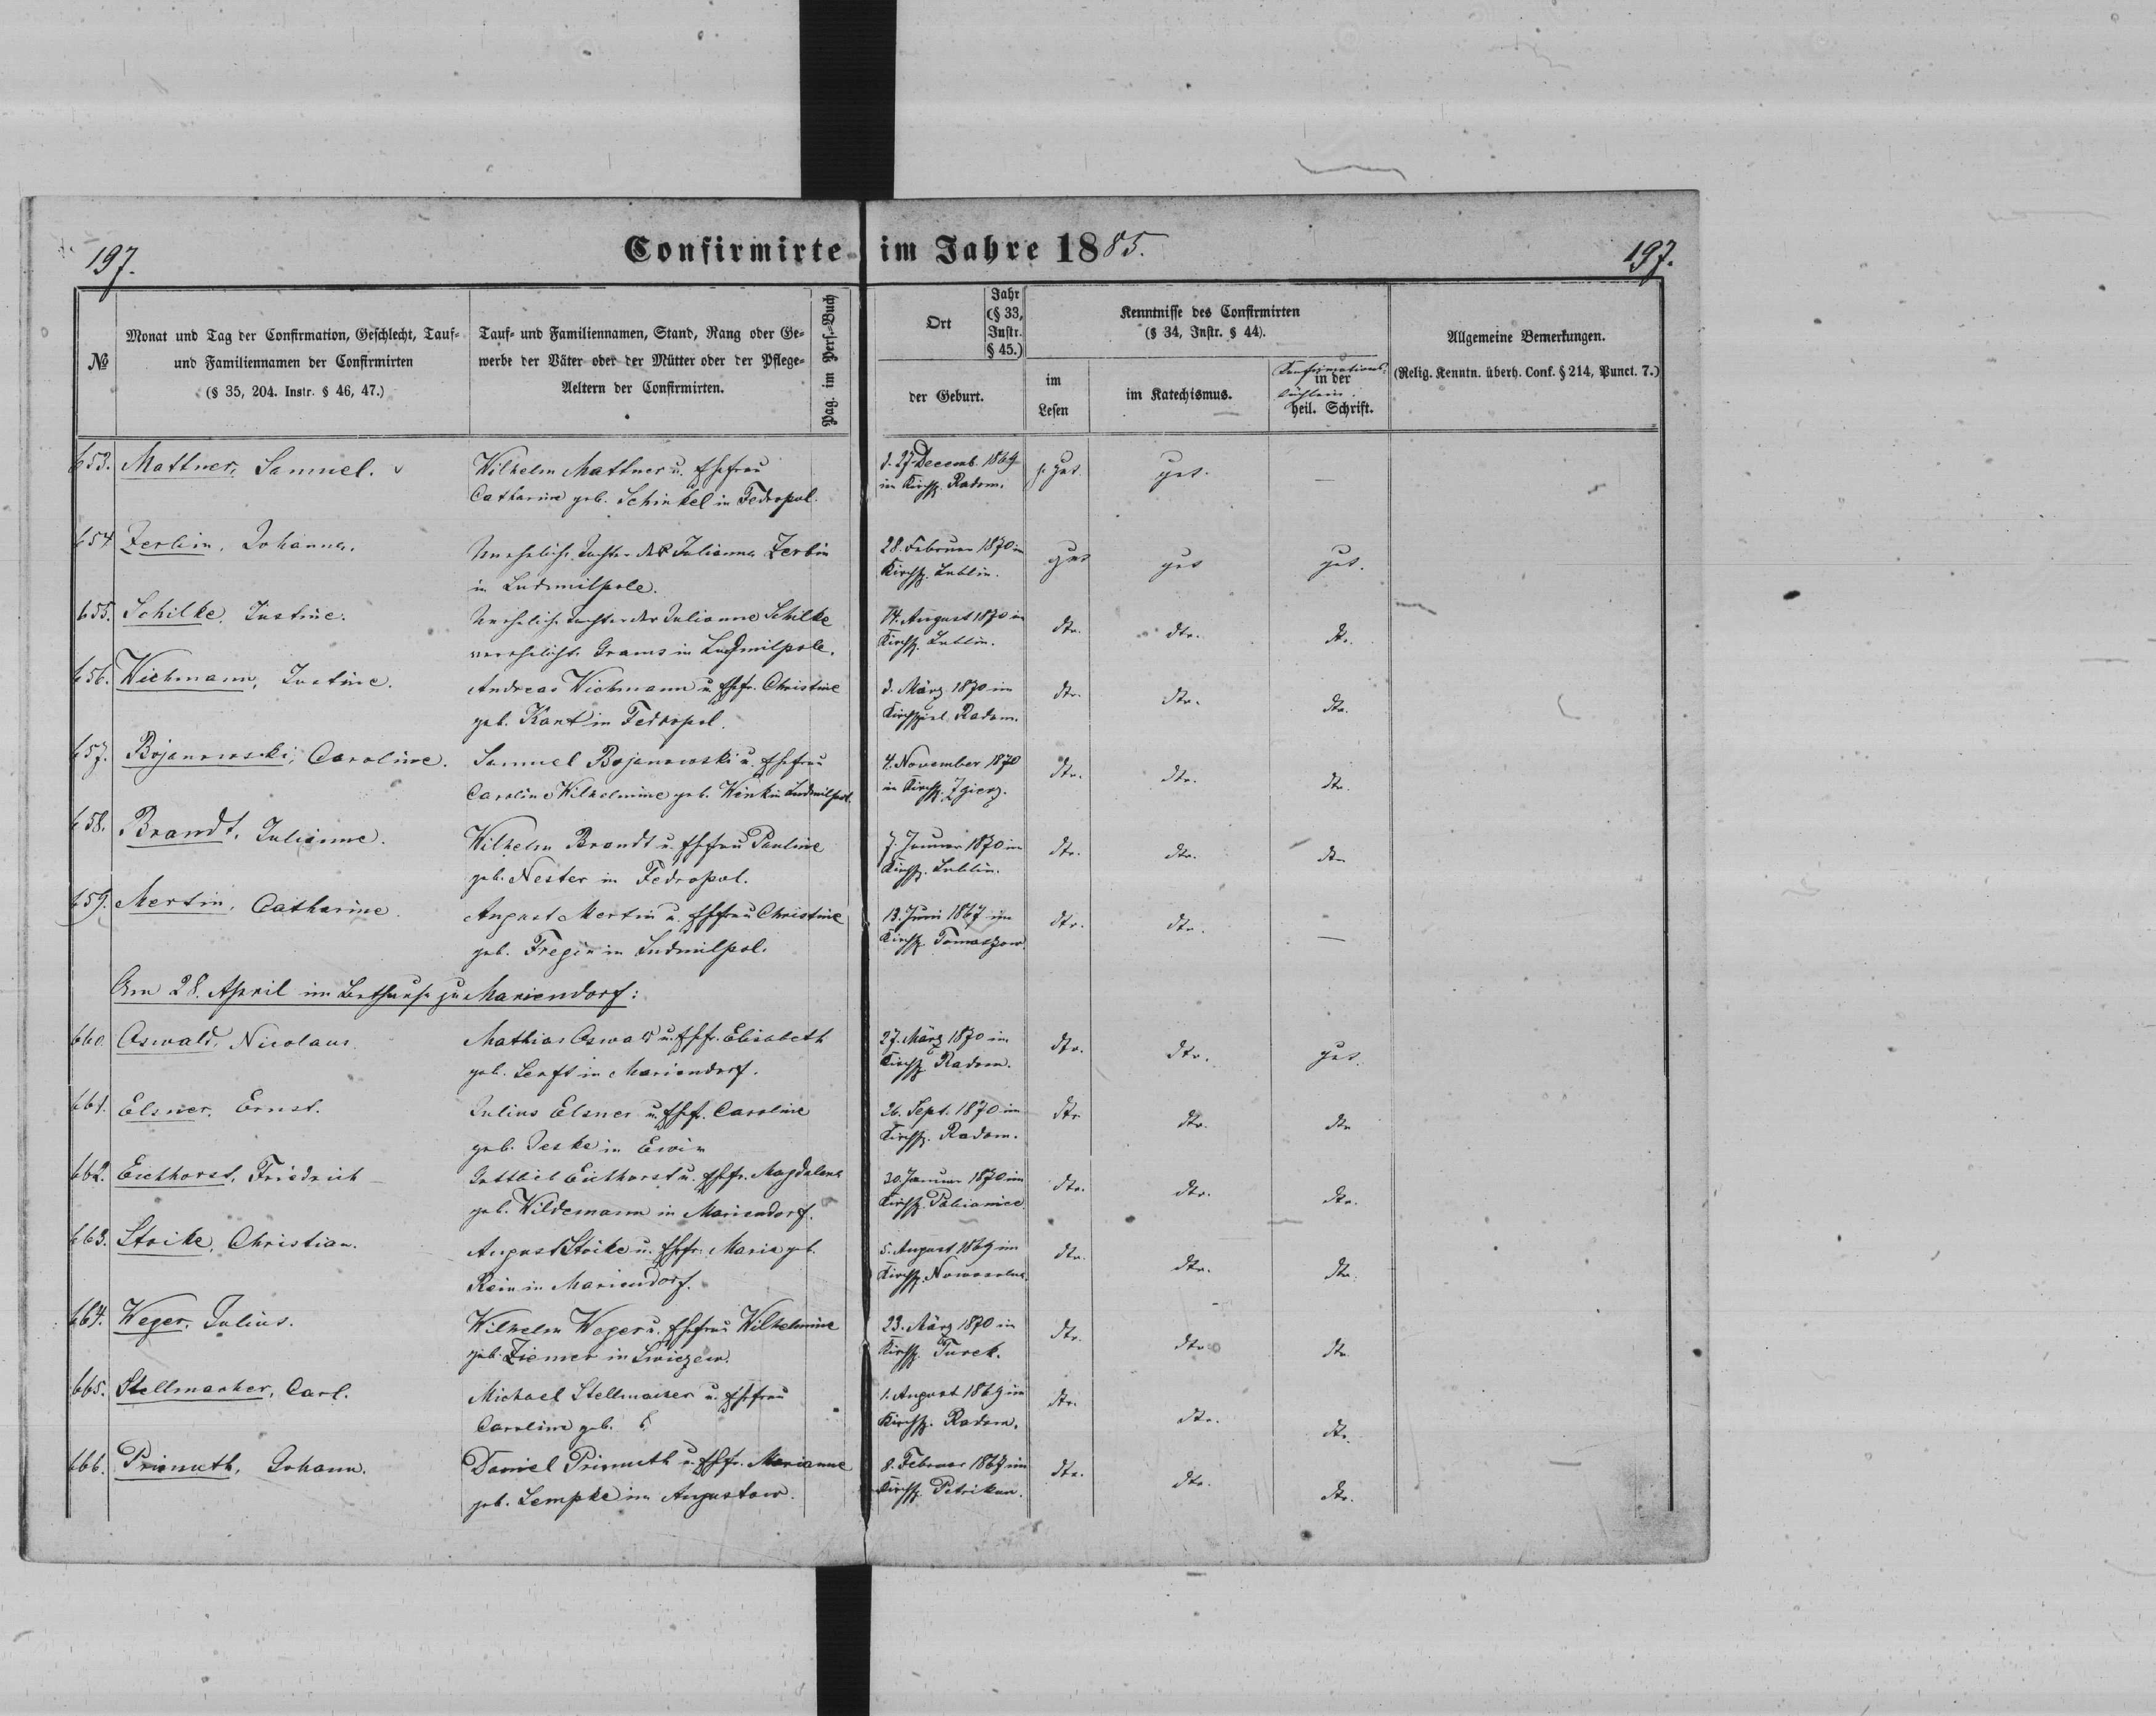 197.
Confirmirte im Jahre 1885.
197.
№
Monat und Tag der Confirmation, Geschlecht, Tauf-
und Familiennamen der Confirmirten
(§ 35, 204. Instr. § 46, 47.)
Tauf- und Familiennamen, Stand, Rang oder Ge-
werbe der Väter oder der Mütter oder der Pflege-
Aeltern der Confirmirten.
Pag. im Pers.-Buch
Ort
Jahr
(§ 33,
Instr.
§ 45.)
der Geburt.
Kenntnisse des Confirmirten
(§ 34, Instr. § 44).
im
Lesen
im Katechismus.
Confirmations-
in der
büchlein.
heil. Schrift.
Allgemeine Bemerkungen.
(Relig. Kenntn. überh. Conf. § 214, Punct. 7.)
653. Mattner, Samuel.
Wilhelm Mattner u. Ehefrau
Catharine geb. Schinkel in Fedropol.
d. 27 Decemb. 1869
im Kirchsp. Radom.
s. gut.
gut.
—
654 Zerbin, Johanna.
Uneheliche Tochter der Julianna Zerbin
in Ludmilpole.
28. Februar 1870 im
Kirchsp. Lublin.
gut
gut
gut.
655. Schilke, Justine.
Uneheliche Tochter der Julianne Schilke
verehelichte Grams in Ludmilpole.
14. August 1870 im
Kirchsp. Lublin.
dto.
dto.
dto.
656. Wichmann, Justine.
Andreas Wichmann u. Ehefr. Christine
geb. Kant in Fedropol.
d. März 1870 im
Kirchspiel Radom.
dto.
dto.
dto.
657. Bojanowski, Caroline.
Samuel Bojanowski u. Ehefrau
Caroline Wilhelmine geb. Wink in Ludmilpol.
4. November 1870
im Kirchsp. Zgierz.
dto.
dto.
dto.
658. Brandt, Julianne.
Wilhelm Brandt u. Ehefrau Pauline
geb. Nester in Fedropol.
7. Januar 1870 im
Kirchsp. Lublin.
dto.
dto.
dto
659. Mertin, Catharine.
August Mertin u. Ehefrau Christine
geb. Fregin in Ludmilpol.
13. Juni 1867 im
Kirchsp. Tomaszow.
dto.
dto.
—
Am 28. April im Bethause zu Mariendorf:
660. Oswald, Nicolaus.
Mathias Oswald u. Ehefr. Elisabeth
geb. Senft in Mariendorf.
27. März 1870 im
Kirchsp. Radom.
dto.
dto.
gut.
661. Elsner, Ernst.
Julius Elsner u. Ehefr. Caroline
geb. Jeske in Erwin
26. Sept. 1870 im
Kirchsp. Radom.
dto
dto.
dto
662. Eichhorst, Friedrich
Gottlieb Eichhorst u. Ehefr. Magdalena
geb. Wildemann in Mariendorf.
30. Januar 1870 im
Kirchsp. Pabianice.
dto.
dto.
dto.
663. Stoike, Christian.
August Stoike u. Ehefr. Maria geb.
Rein in Mariendorf.
5. August 1869 im
Kirchsp. Nowosolna.
dto.
dto.
dto.
664. Weger, Julius.
Wilhelm Weger u. Ehefrau Wilhelmine
geb. Ziemer in
23. März 1870 im
Kirchsp. Turek.
dto.
dto.
dto.
665. Stellmacher, Carl.
Michael Stellmacher u. Ehefrau
Caroline geb. ?
1. August 1869 im
Kirchsp. Radom.
dto.
dto.
dto.
666. Primuth, Johann.
Daniel Primuth u. Ehefr. Marianne
geb. Lempke in Augustow.
8. Februar 1867 im
Kirchsp. Petrikau.
dto.
dto.
dto.